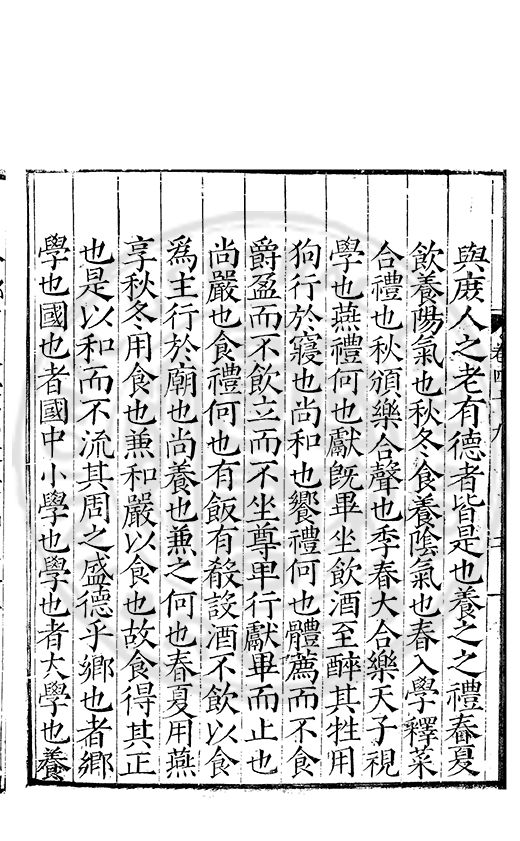 與庻人之老有德者皆是也養之之禮春夏
飲養陽氣也秋冬食養陰氣也春入學釋菜
合禮也秋頒樂合聲也季春大合樂天子視
學也燕禮何也獻旣畢坐飲酒至醉其牲用
狗行於寢也尚和也饗禮何也體薦而不食
爵盈而不飲立而不坐尊卑行獻畢而止也
尚嚴也食禮何也有飯有殽設酒不飲以食
爲主行於廟也尚養也兼之何也春夏用燕
享秋冬用食也兼和嚴以食也故食得其正
也是以和而不流其周之盛德乎鄉也者鄉
學也國也者國中小學也學也者大學也養